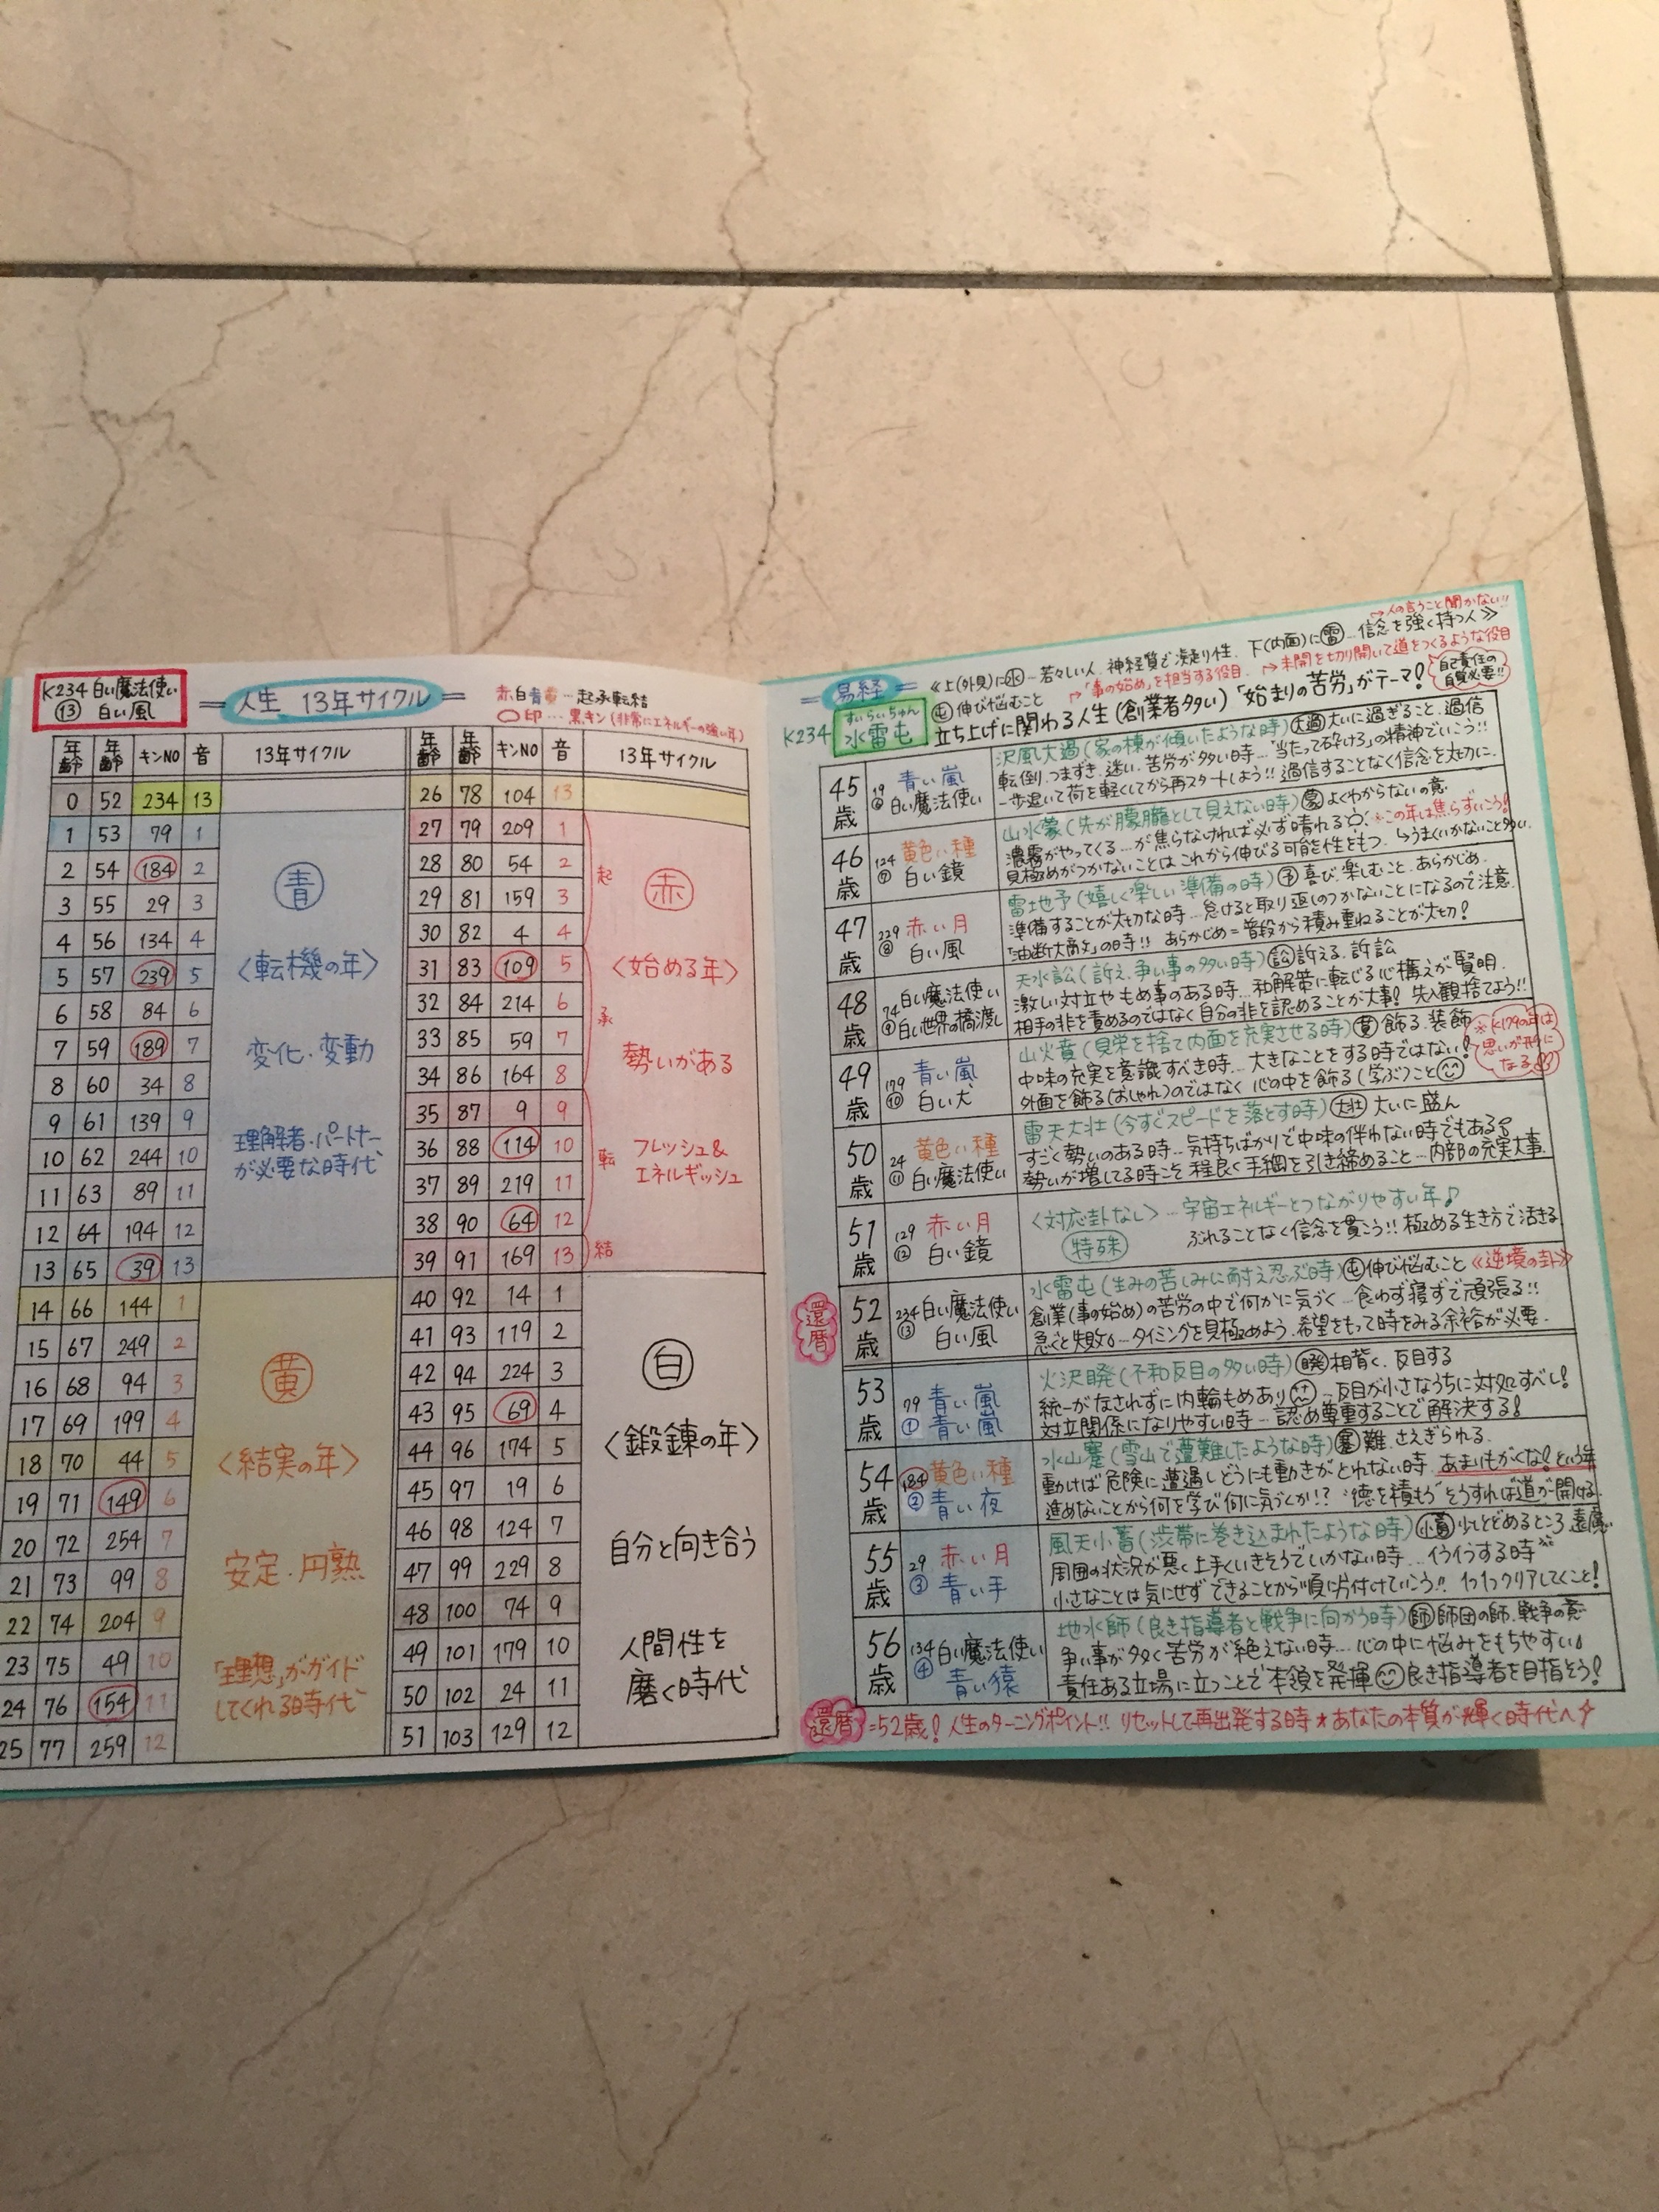 K234 白い魔法使い
⑬ 白い風
= 人生 13年サイクル =
赤白青黄…起承転結
○印…黒キン(非常にエネルギーの強い年)
年齢 年齢 キンNO 音 13年サイクル
0 52 234 13
1 53 79 1
2 54 184 2
3 55 29 3
4 56 134 4
5 57 239 5
6 58 84 6
7 59 189 7
8 60 34 8
9 61 139 9
10 62 244 10
11 63 89 11
12 64 194 12
13 65 39 13
青
〈転機の年〉
変化・変動
理解者・パートナー
が必要な時代
14 66 144 1
15 67 249 2
16 68 94 3
17 69 199 4
18 70 44 5
19 71 149 6
20 72 254 7
21 73 99 8
22 74 204 9
23 75 49 10
24 76 154 11
25 77 259 12
黄
〈結実の年〉
安定・円熟
「理想」がガイド
してくれる時代
年齢 年齢 キンNO 音 13年サイクル
26 78 104 13
27 79 209 1
28 80 54 2
29 81 159 3
30 82 4 4
31 83 109 5
32 84 214 6
33 85 59 7
34 86 164 8
35 87 9 9
36 88 114 10
37 89 219 11
38 90 64 12
39 91 169 13
起
承
転
結
赤
〈始める年〉
勢いがある
フレッシュ&
エネルギッシュ
40 92 14 1
41 93 119 2
42 94 224 3
43 95 69 4
44 96 174 5
45 97 19 6
46 98 124 7
47 99 229 8
48 100 74 9
49 101 179 10
50 102 24 11
51 103 129 12
白
〈鍛錬の年〉
自分と向き合う
人間性を
磨く時代
→人の言うこと聞かない!!
= 易経 = 《上(外見)に水…若々しい人、神経質で凌走り性、下(内面)に雷…信念を強く持つ人》
→「事の始め」を担当する役目 →未開を切り開いて道をつくるような役目
K234 すいらいちゅん 水雷屯 屯 伸び悩むこと
立ち上げに関わる人生(創業者多い)「始まりの苦労」がテーマ!
自己責任の
自覚必要!!
45歳 19 ⑥ 青い嵐 白い魔法使い
沢風大過(家の棟が傾いたような時) 大過 大いに過ぎること、過信
転倒、つまずき、迷い、苦労が多い時…「当たって砕けろ」の精神でいこう!!
一歩退いて荷を軽くしてから再スタートしよう!! 過信することなく信念を大切に。
46歳 124 ⑦ 黄色い種 白い鏡
山水蒙(先が朦朧として見えない時) 蒙 よくわからないの意
濃霧がやってくる…が焦らなければ必ず晴れる ※この年は焦らずいこう!
見極めがつかないことは これから伸びる可能性をもつ →うまくいかないこと多い
47歳 229 ⑧ 赤い月 白い風
雷地予(嬉しく楽しい準備の時) 予 喜び、楽しむこと、あらかじめ
準備することが大切な時…怠けると取り返しのつかないことになるので注意
「油断大敵」の時!! あらかじめ=普段から積み重ねることが大切!
48歳 74 ⑨ 白い魔法使い 白い世界の橋渡し
天水訟(訴え、争い事の多い時) 訟 訴える、訴訟
激しい対立やもめ事のある時…和解策に転じる心構えが賢明
相手の非を責めるのではなく自分の非を認めることが大事! 先入観捨てよう!!
49歳 179 ⑩ 青い嵐 白い犬
山火賁(見栄を捨て内面を充実させる時) 賁 飾る、装飾
中味の充実を意識すべき時…大きなことをする時ではない!
外面を飾る(おしゃれ)のではなく 心の中を飾る(学ぶ)こと
※K179の年は
思いが形に
なる!!
50歳 24 ⑪ 黄色い種 白い魔法使い
雷天大壮(今すぐスピードを落とす時) 大壮 大いに盛ん
すごく勢いのある時…気持ちばかりで中味の伴わない時でもある
勢いが増してる時こそ 程良く手綱を引き締めること…内部の充実大事
51歳 129 ⑫ 赤い月 白い鏡
〈対応卦なし〉…宇宙エネルギーとつながりやすい年♪
特殊 ぶれることなく信念を貫こう!! 極める生き方で活きる
還暦
52歳 234 ⑬ 白い魔法使い 白い風
水雷屯(生みの苦しみに耐え忍ぶ時) 屯 伸び悩むこと 《逆境の卦》
創業(事の始め)の苦労の中で何かに気づく…食わず寝ずで頑張る!!
急ぐと失敗。…タイミングを見極めよう、希望をもって時をみる余裕が必要
53歳 79 ① 青い嵐 青い嵐
火沢睽(不和反目の多い時) 睽 相背く、反目する
統一がなされずに内輪もめあり…反目が小さなうちに対処すべし!
対立関係になりやすい時…認め尊重することで解決する!
54歳 184 ② 黄色い種 青い夜
水山蹇(雪山で遭難したような時) 蹇 難、さえぎられる
動けば危険に遭遇しどうにも動きがとれない時、あまりもがくな!という年
進めないことから何を学び何に気づくか!? 徳を積もう そうすれば道が開ける
55歳 29 ③ 赤い月 青い手
風天小蓄(渋滞に巻き込まれたような時) 小蓄 少しとどめるところ、遠慮
周囲の状況が悪く上手くいきそうでいかない時…イライラする時
小さなことは気にせず できることから順に片付けていこう!! 1つ1つクリアしてくこと!
56歳 134 ④ 白い魔法使い 青い猿
地水師(良き指導者と戦争に向かう時) 師 師団の師、戦争の意
争い事が多く苦労が絶えない時…心の中に悩みをもちやすい
責任ある立場に立つことで本領を発揮 良き指導者を目指そう!
還暦=52歳! 人生のターニングポイント!! リセットして再出発する時★あなたの本質が輝く時代へ